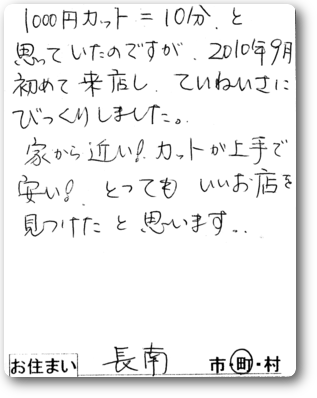 1000円カット=10分、と
思っていたのですが、2010年9月
初めて来店し、ていねいさに
びっくりしました。
家から近い!カットが上手で
安い!とっても いいお店を
見つけたと思います..
お住まい 長南 市・町・村